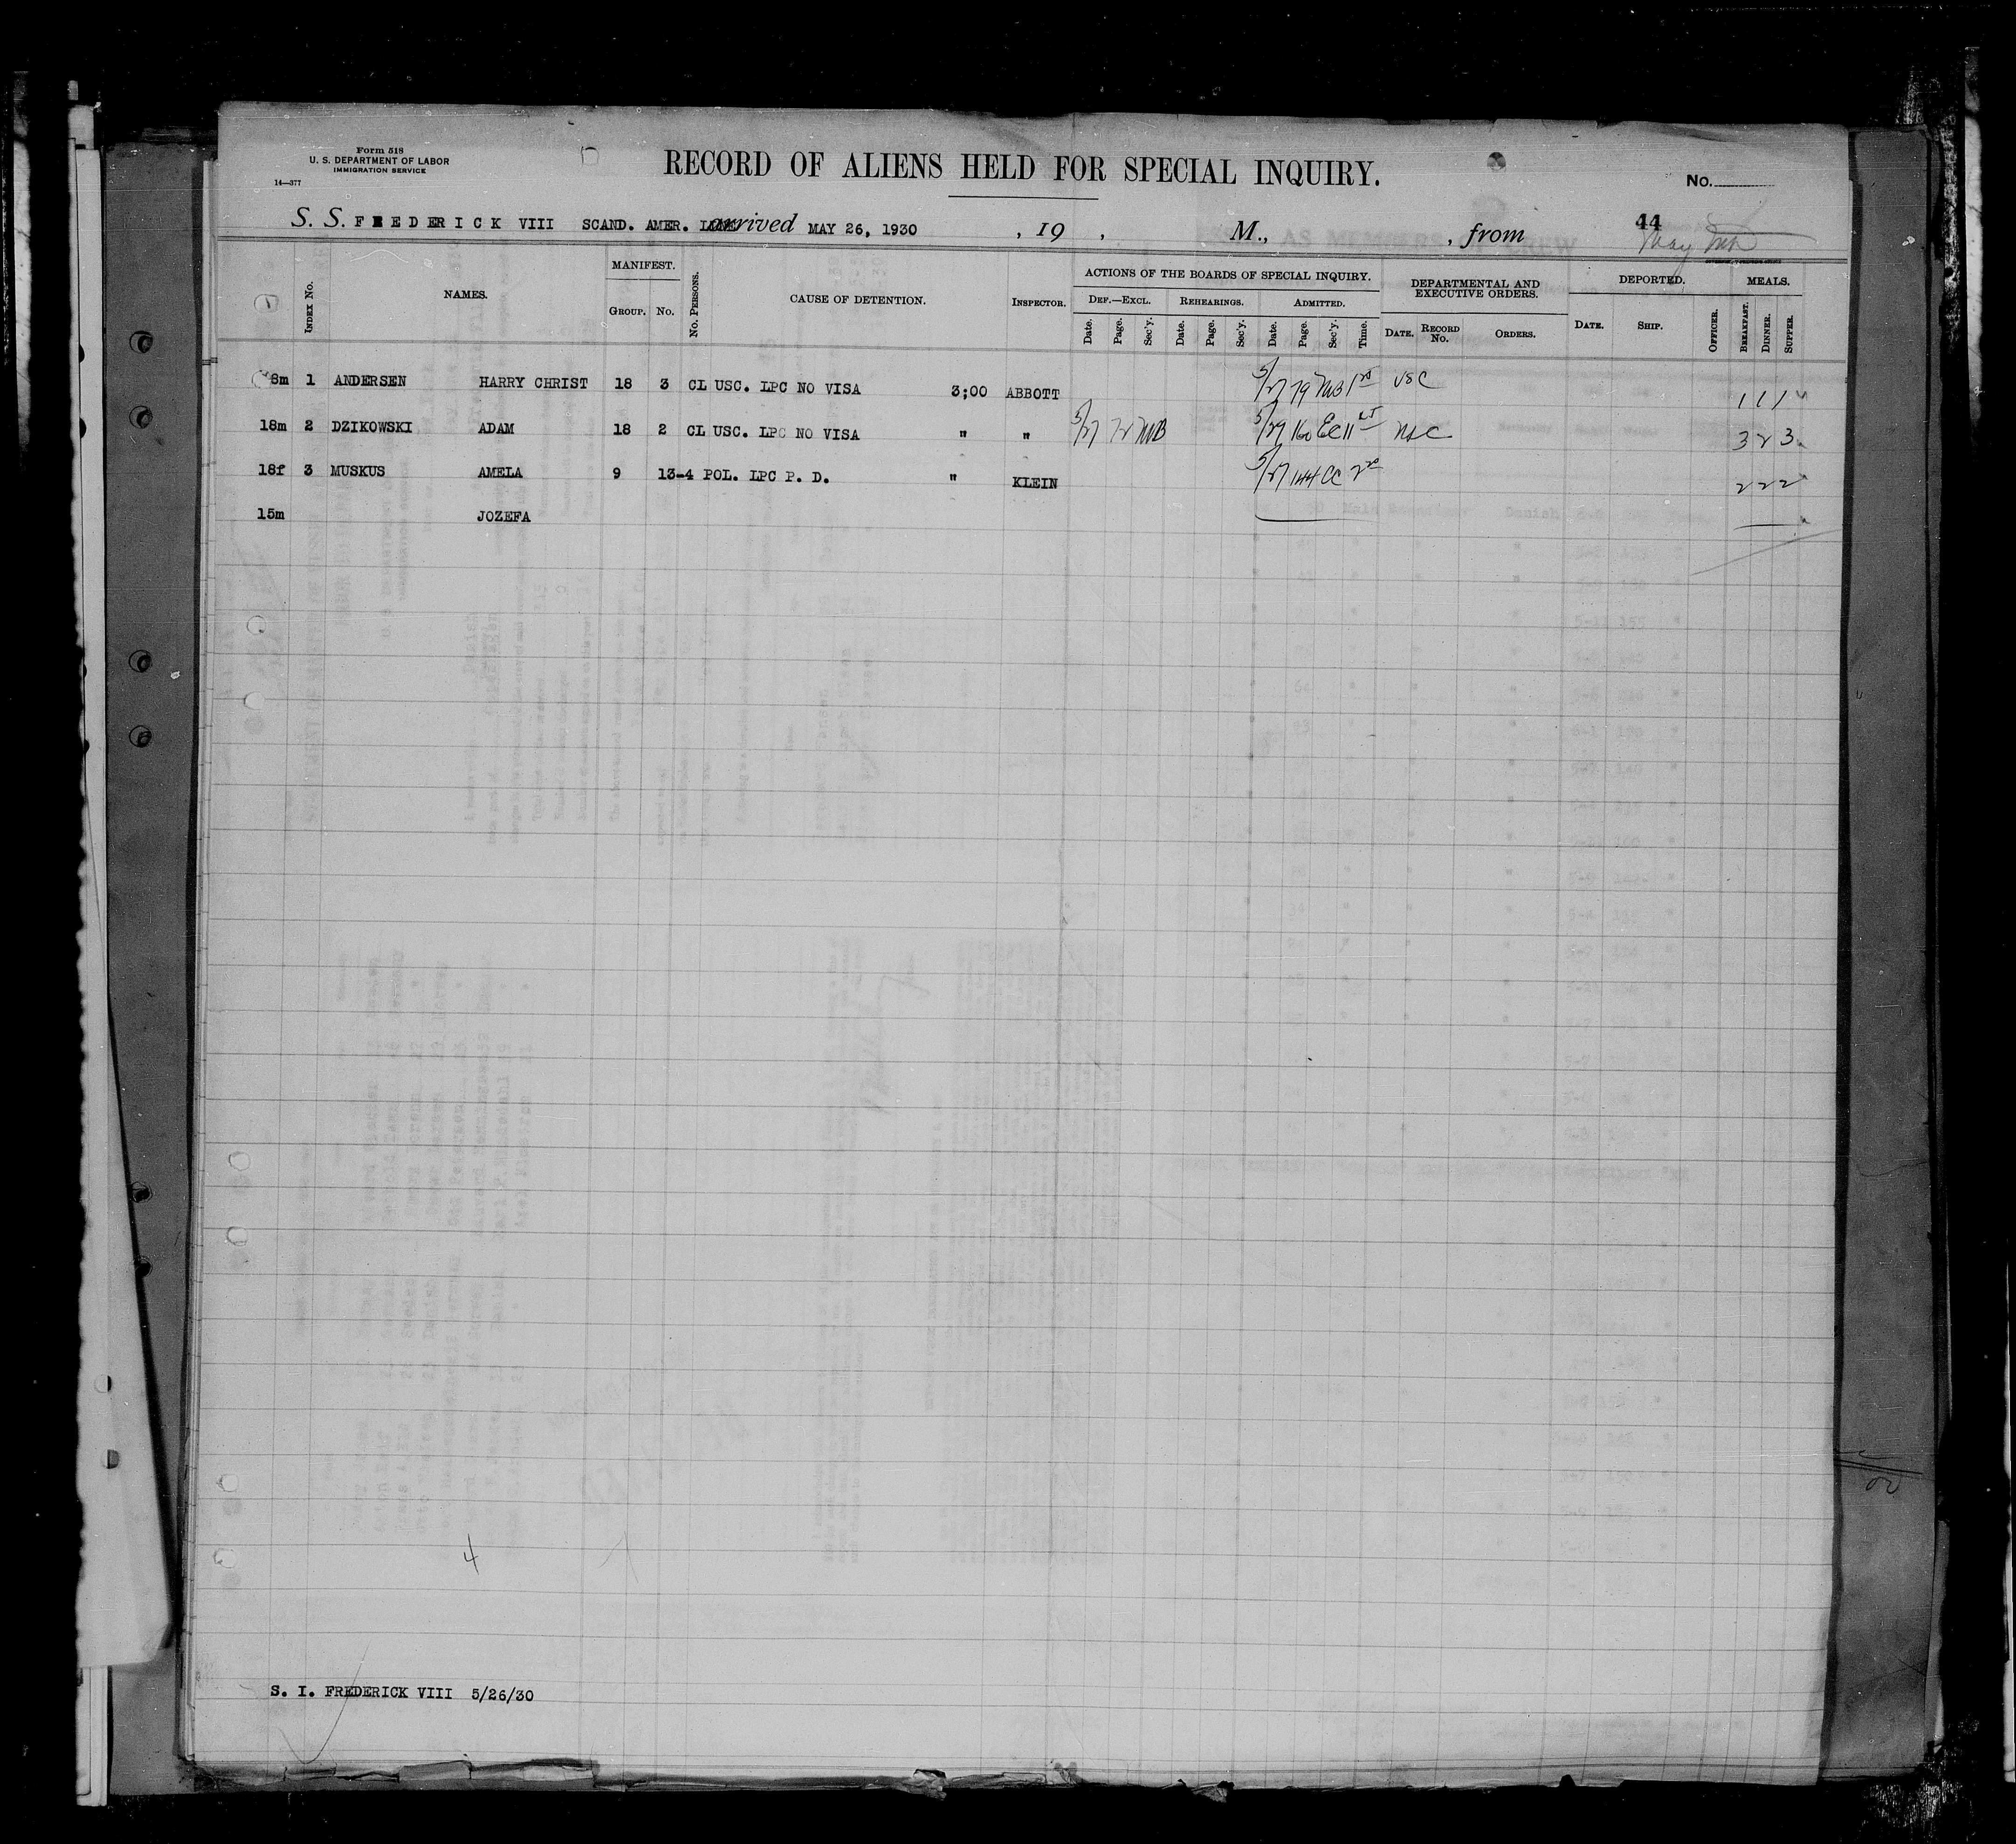 Form 518
U. S. DEPARTMENT OF LABOR
IMMIGRATION SERVICE
14—377
RECORD OF ALIENS HELD FOR SPECIAL INQUIRY.
No.
44
S. S. FREDERICK VIII SCAND. AMER. LINE arrived MAY 26, 1930 , 19 , M., , from
INDEX No. NAMES. MANIFEST. GROUP. No. No. PERSONS. CAUSE OF DETENTION. INSPECTOR. ACTIONS OF THE BOARDS OF SPECIAL INQUIRY. DEPARTMENTAL AND EXECUTIVE ORDERS. DEPORTED. MEALS.
DEF.—EXCL. REHEARINGS. ADMITTED.
Date. Page. Sec'y. Date. Page. Sec'y. Date. Page. Sec'y. Time. DATE. RECORD No. ORDERS. DATE. SHIP. OFFICER. BREAKFAST. DINNER. SUPPER.
8m 1 ANDERSEN HARRY CHRIST 18 3 CL USC. LPC NO VISA 3;00 ABBOTT 5/27 79 USC 1 1 1
18m 2 DZIKOWSKI ADAM 18 2 CL USC. LPC NO VISA " " 5/27 72 MB 5/29 160 EC 11 3 2 3
18f 3 MUSKUS AMELA 9 13-4 POL. LPC P. D. " KLEIN 5/27 144 CC 2 2 2
15m JOZEFA
4
S. I. FREDERICK VIII 5/26/30